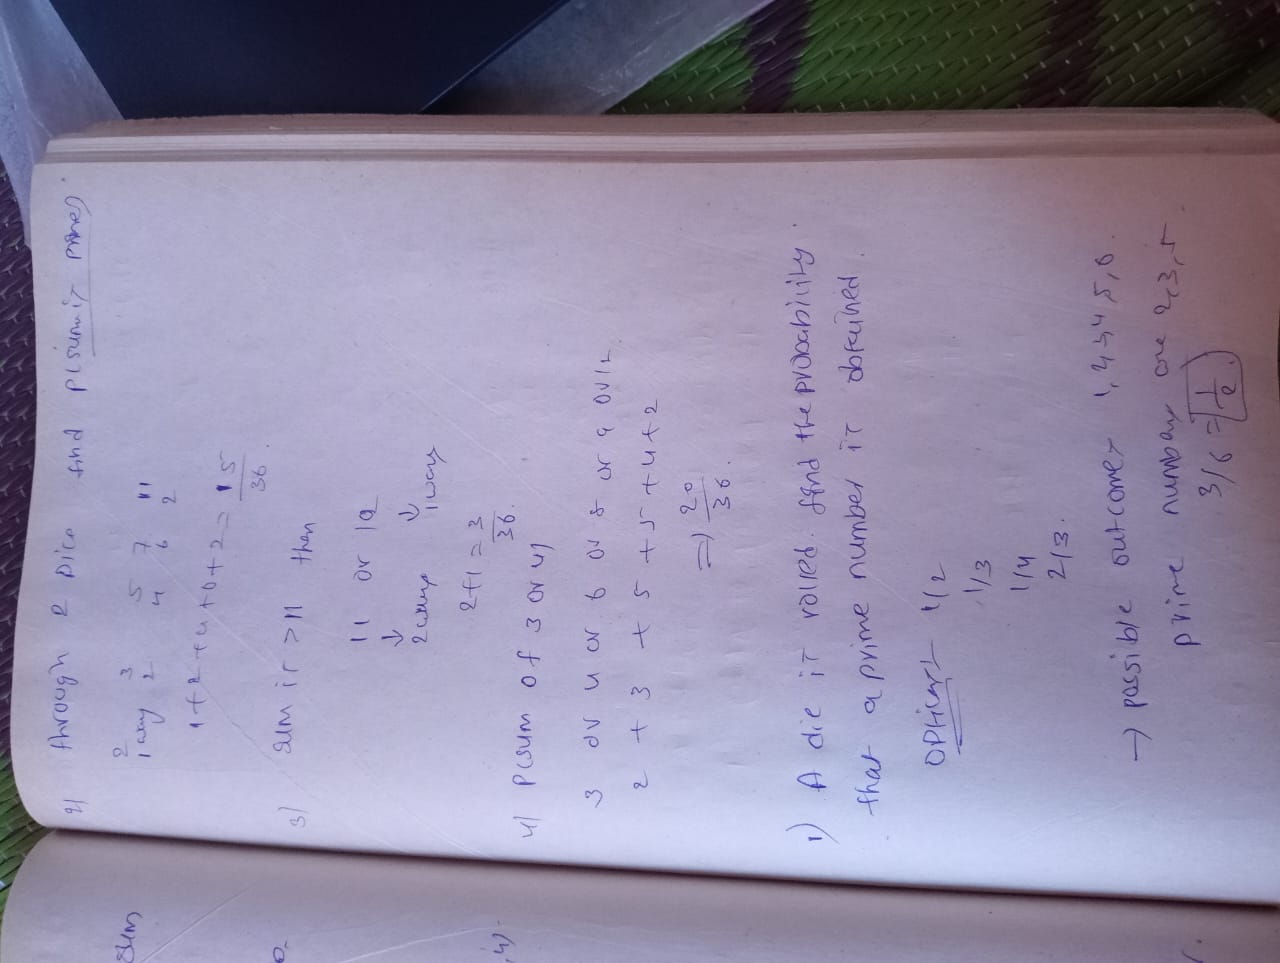 2) through 2 Dice find P(sum is prime)
2 3 5 7 11
1 way 2 4 6 2
1+2+4+6+2 = 15/36.
3) sum is > 11 then
11 or 12
↓ ↓
2 ways 1 way
2+1 = 3/36.
4) P(sum of 3 or 4)
3 or 4 or 6 or 8 or 9 or 12
2 + 3 + 5 + 5 + 4 + 2
=) 20/36.
1) A die is rolled. find the probability
that a prime number is obtained.
option:- 1/2
1/3
1/4
2/3.
→ possible outcomes 1, 2, 3, 4, 5, 6.
prime number are 2, 3, 5
3/6 = 1/2.
sum